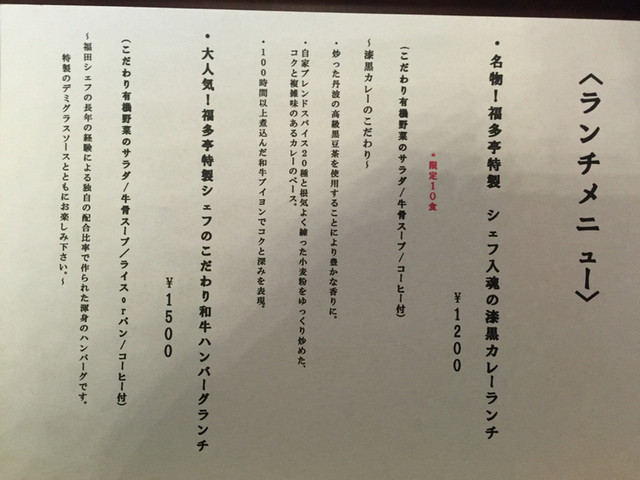 〈ランチメニュー〉
・名物！福多亭特製　シェフ入魂の漆黒カレーランチ
￥1200
・限定10食
（こだわり有機野菜のサラダ/牛骨スープ/コーヒー付）
～漆黒カレーのこだわり～
・炒った丹波の高級黒豆茶を使用することにより豊かな香りに。
・自家ブレンドスパイス20種と根気よく練った小麦粉をゆっくり炒めた、
コクと複雑味のあるカレーのベース。
・100時間以上煮込んだ和牛ブイヨンでコクと深みを表現。
・大人気！福多亭特製シェフのこだわり和牛ハンバーグランチ
￥1500
（こだわり有機野菜のサラダ/牛骨スープ/ライスorパン/コーヒー付）
～福田シェフの長年の経験による独自の配合比率で作られた渾身のハンバーグです。
特製のデミグラスソースとともにお楽しみ下さい。～